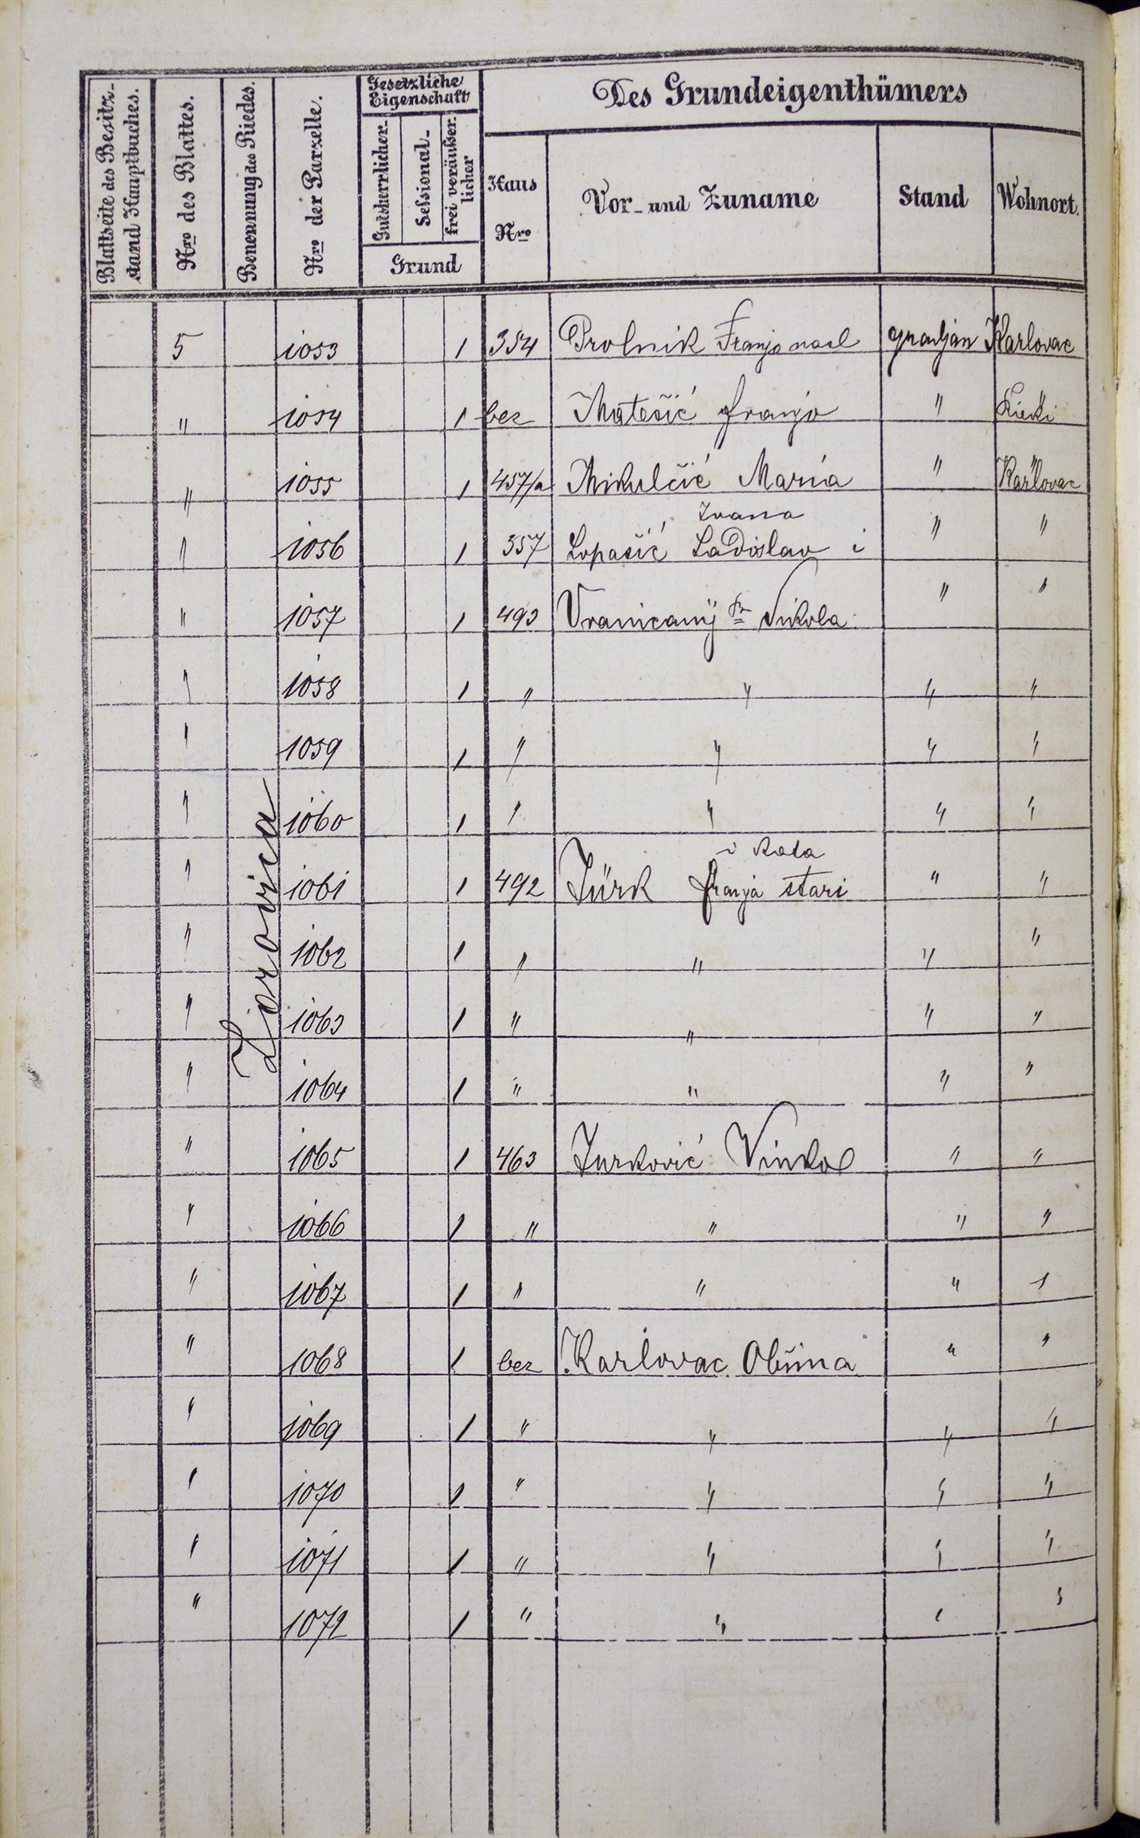 Blattseite des Besitz-stand Hauptbuches.
Nro des Blattes.
Benennung des Riedes.
Nro der Parzelle.
Gesetzliche Eigenschaft
Gutsherrlicher-
Sessional-
frei veräußerlicher
Grund
Des Grundeigenthümers
Haus Nro
Vor- und Zuname
Stand
Wohnort.
5 1053 1 354 Franjo nasl Karlovac
" 1054 1 bez Matešić Franjo "
" 1055 1 457/a Mikulčić Maria " Karlovac
Ivana
" 1056 1 357 Lopašić Ladislav i " "
" 1057 1 493 Vranicany Nikola " "
" 1058 1 " " " "
" 1059 1 " " " "
" 1060 1 " " " "
i Kata
" 1061 1 492 Türk Franja stari " "
" 1062 1 " " " "
" 1063 1 " " " "
" 1064 1 " " " "
" 1065 1 463 Vinko " "
" 1066 1 " " " "
" 1067 1 " " " "
" 1068 1 bez Karlovac Obćina " "
" 1069 1 " " " "
" 1070 1 " " " "
" 1071 1 " " " "
" 1072 1 " " " "